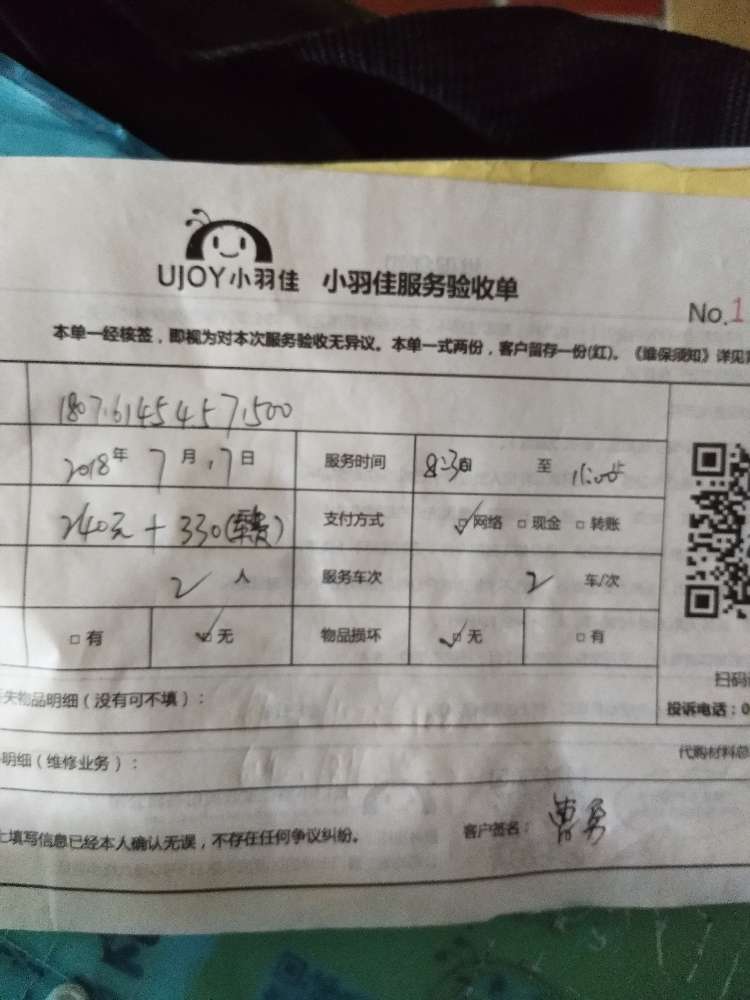 UJOY小羽佳 小羽佳服务验收单
No.1
本单一经核签，即视为对本次服务验收无异议。本单一式两份，客户留存一份(红)。《维保须知》详见
1807.6145457.500
2018年 7月.17日 服务时间 8:30 至 11:00
240元 + 330( 支付方式 网络 现金 转账
2人 服务车次 2 车/次
有 无 物品损坏 无 有
失物品明细（没有可不填）：
扫码
投诉电话：0
明细（维修业务）：
代购材料总
上填写信息已经本人确认无误，不存在任何争议纠纷。
客户签名：曹勇